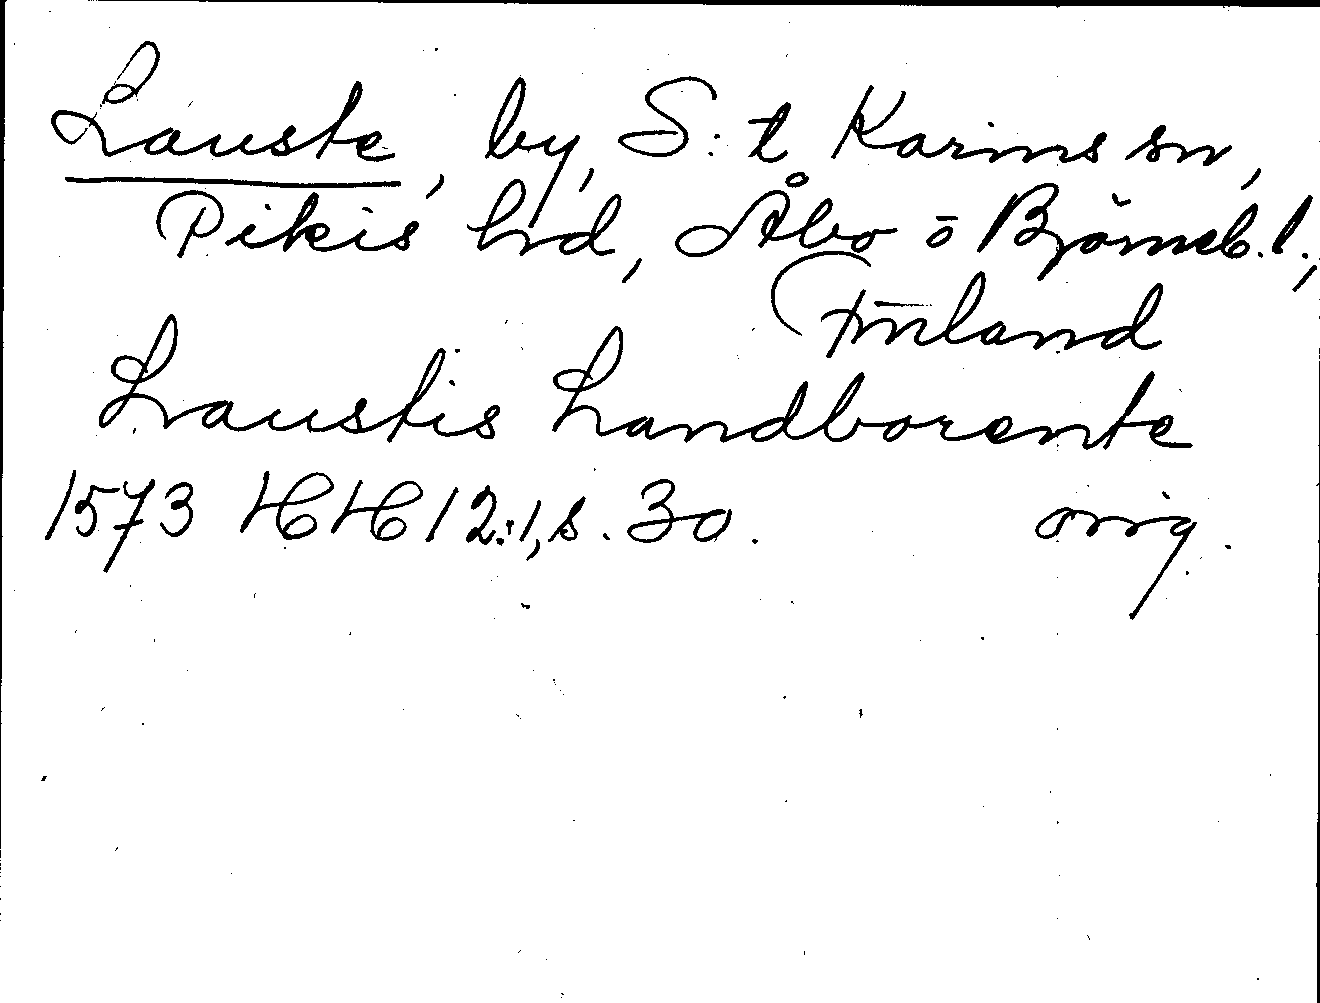 Lauste, by, S:t Karins sn,
Pikis hrd, Åbo o Björneb. l.,
Finland
Laustis Landborente
1573 HH 12:1, s. 30. orig.